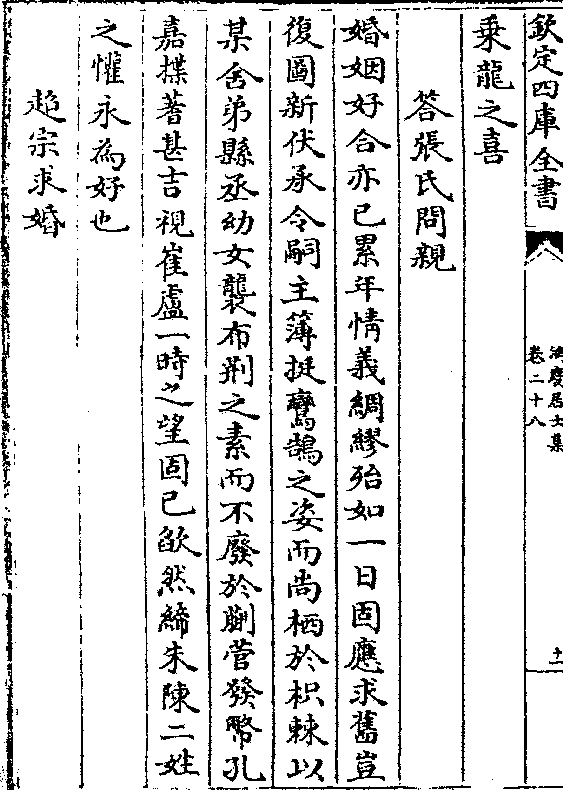 欽定四庫全書
鴻慶居士集
卷二十八
十一
乗龍之喜
答張氏問親
婚姻好合亦已累年情義綢繆殆如一日固應求舊豈
復圖新伏承令嗣主簿挺鸞鵠之姿而尚栖於枳棘以
某舍弟縣丞幼女襲布荆之素而不廢於蒯菅發幣孔
嘉揲蓍甚吉視崔盧一時之望固已歆然締朱陳二姓
之懽永為好也
趙宗求婚